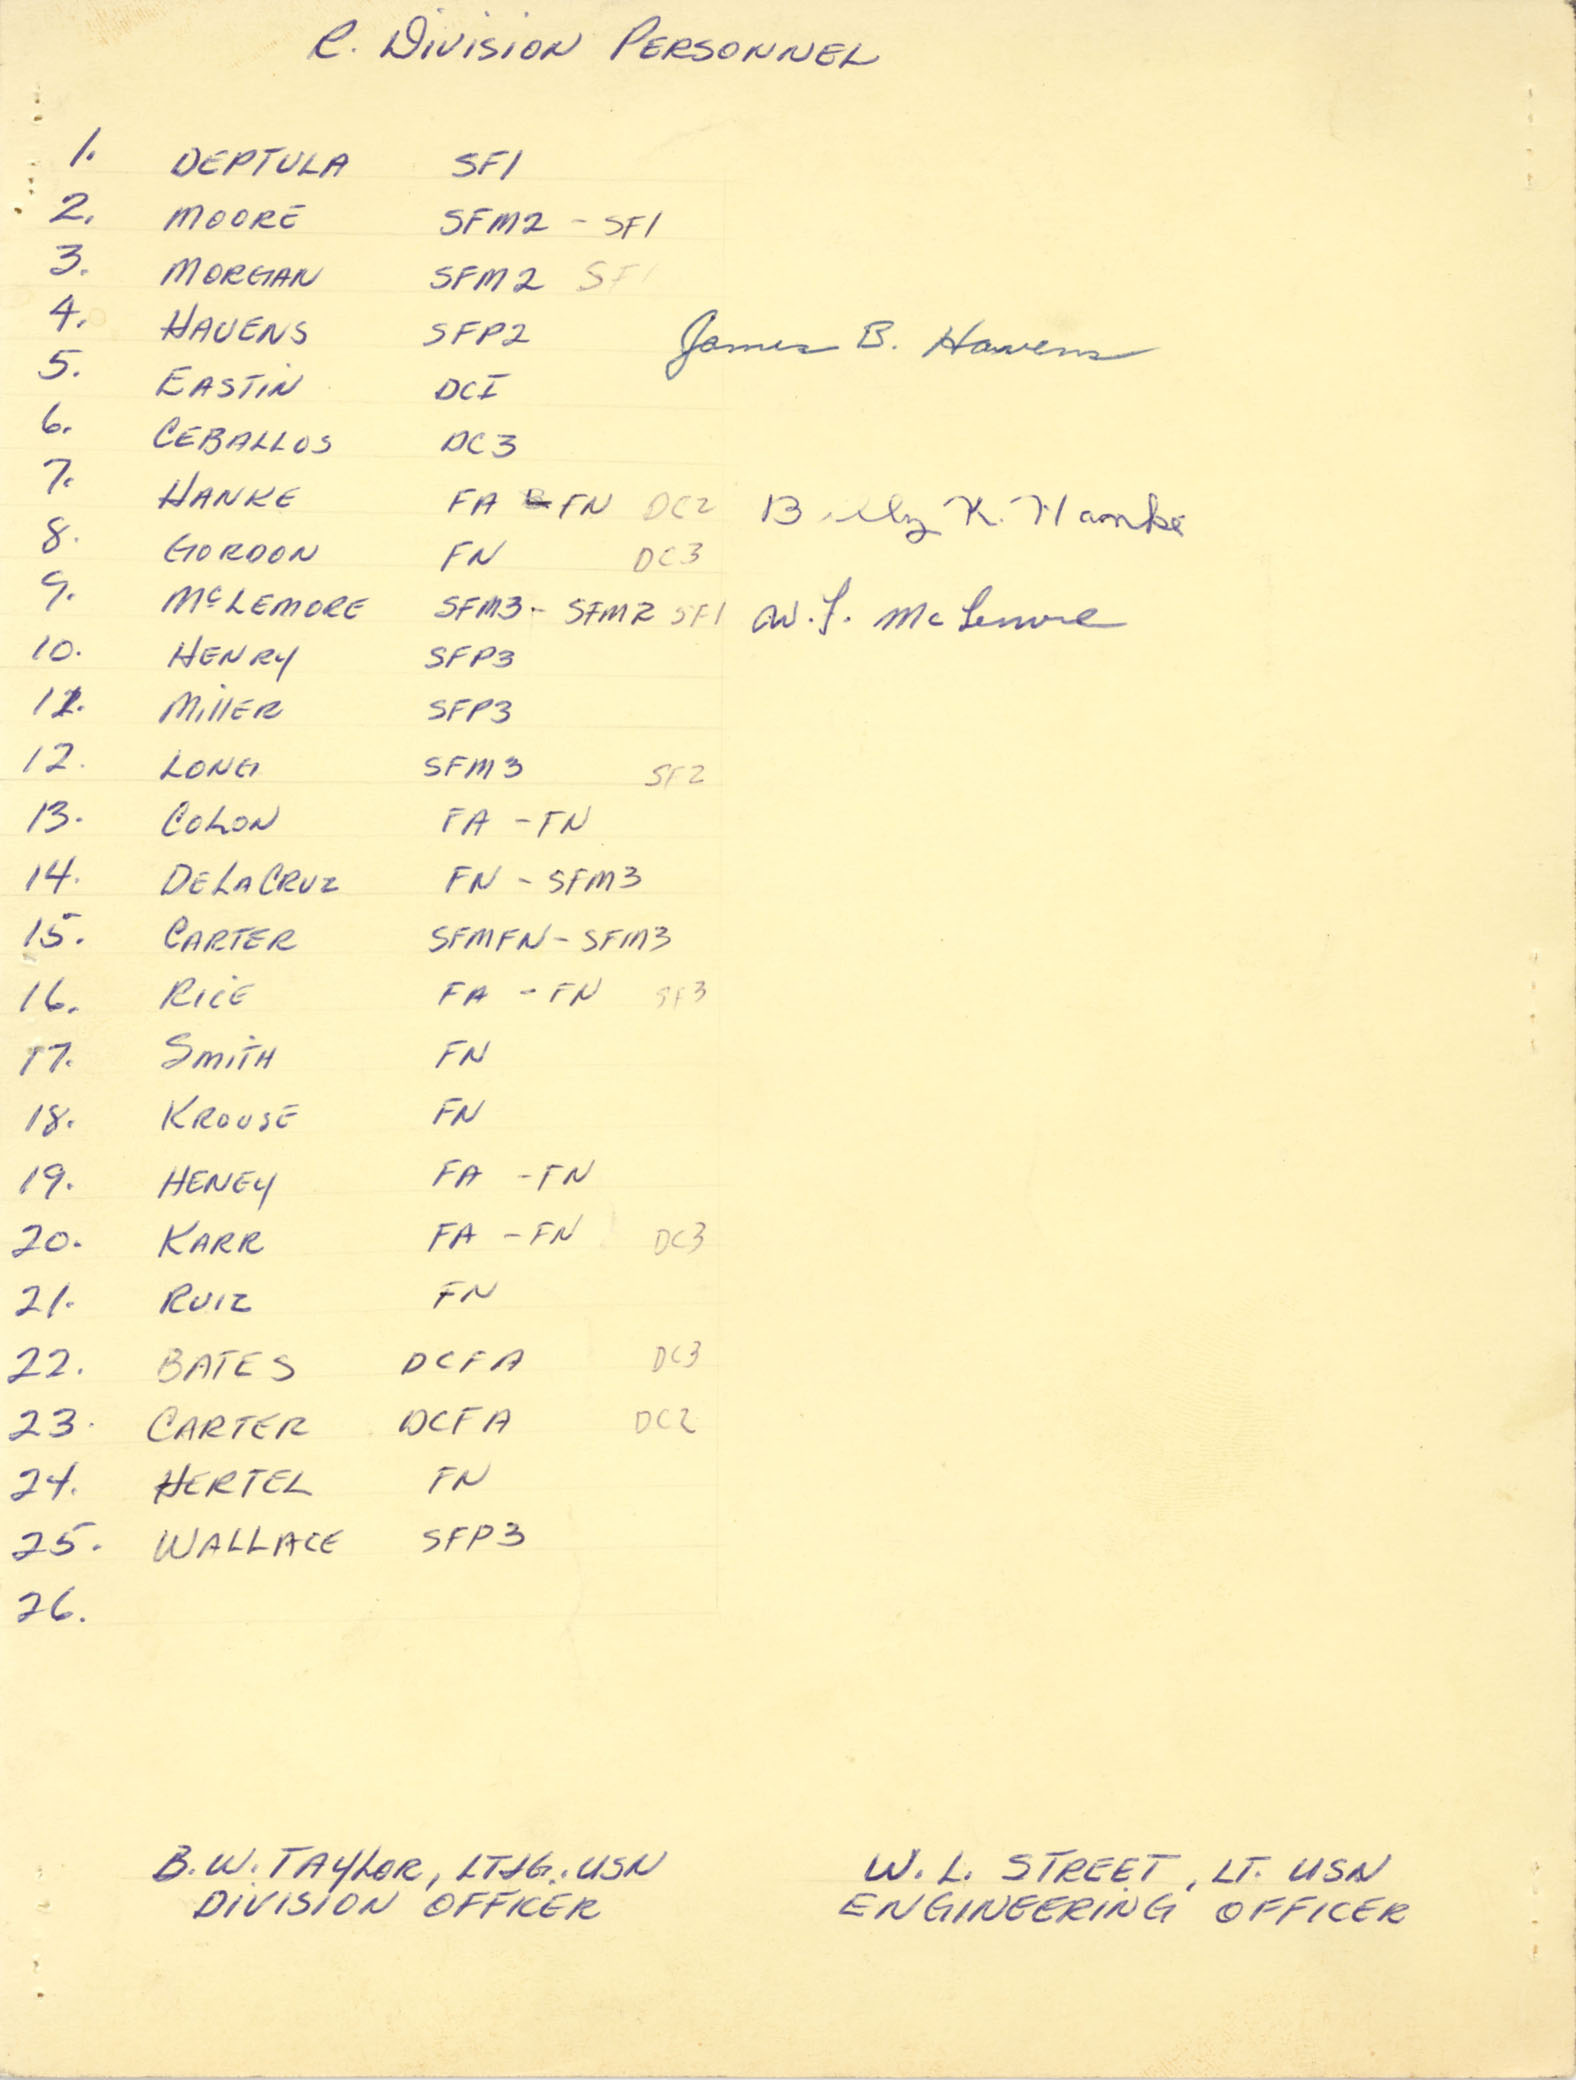 R. DIVISION PERSONNEL
1. DEPTULA SF1
2. MOORE SFM2 - SF1
3. MORGAN SFM2 SF1
4. HAVENS SFP2 James B. Havens
5. EASTIN DCI
6. CEBALLOS DC3
7. HANKE FA FN DC2 Billy K. Hanke
8. GORDON FN DC3
9. McLEMORE SFM3 - SFM2 SF1 W. F. McLemore
10. HENRY SFP3
11. MillER SFP3
12. LONG SFM3 SF2
13. COLON FA - FN
14. DELACRUZ FN - SFM3
15. CARTER SFMFN - SFM3
16. RICE FA - FN SF3
17. SMITH FN
18. KROUSE FN
19. HENEY FA - FN
20. KARR FA - FN DC3
21. RUIZ FN
22. BATES DCFA DC3
23. CARTER DCFA DC2
24. HERTEL FN
25. WALLACE SFP3
26.
B. W. TAYLOR, LTJG. USN
DIVISION OFFICER
W. L. STREET, LT. USN
ENGINEERING OFFICER